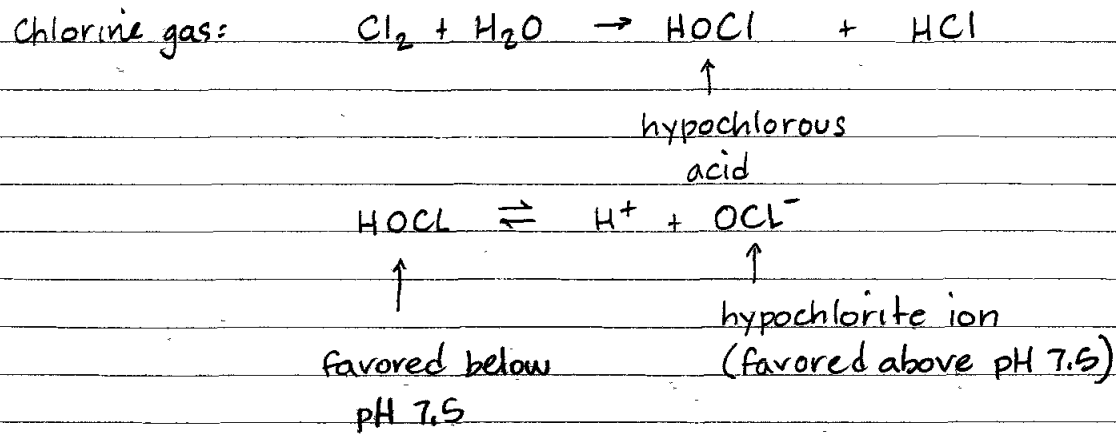 Chlorine gas: Cl₂ + H₂O → HOCl + HCl
↑
hypochlorous
acid
HOCL ⇌ H⁺ + OCL⁻
↑ ↑
hypochlorite ion
favored below (favored above pH 7.5)
pH 7.5